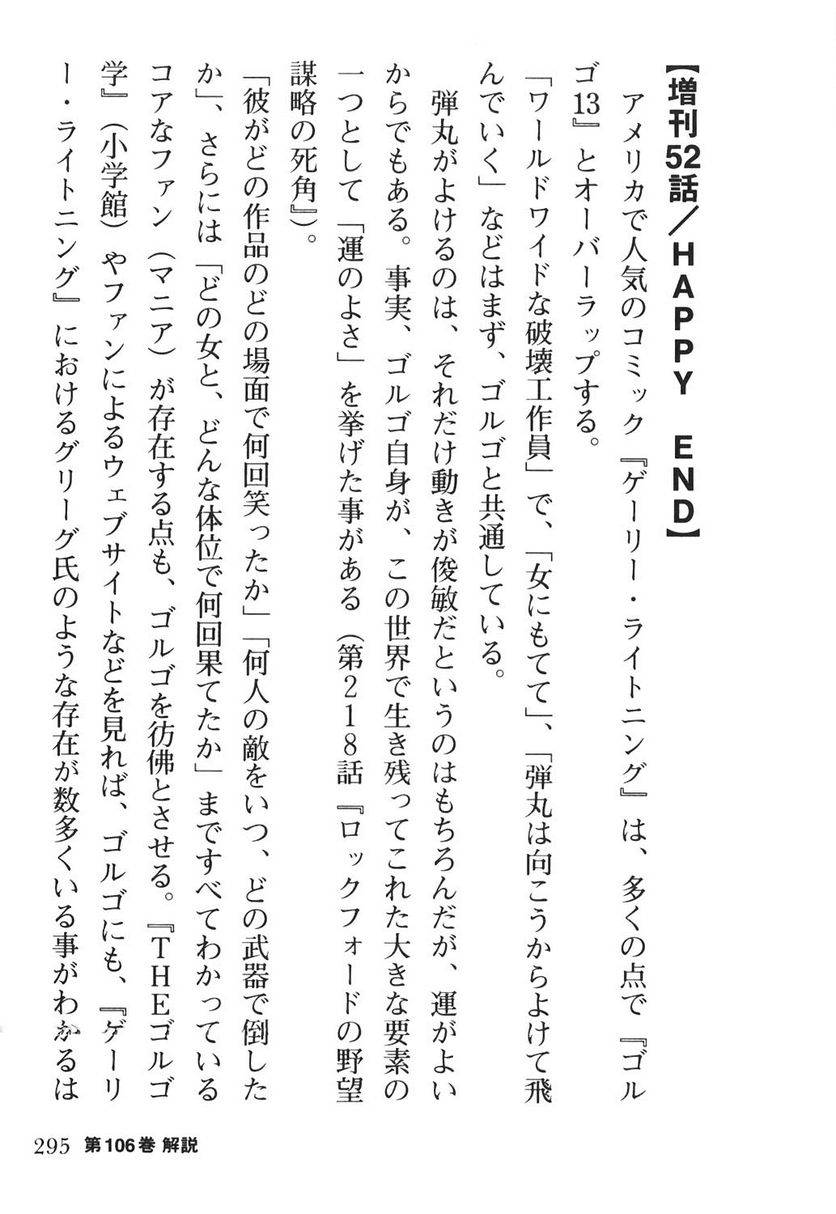 【増刊52話／HAPPY　END】
　アメリカで人気のコミック『ゲーリー・ライトニング』は、多くの点で『ゴル
ゴ13』とオーバーラップする。
「ワールドワイドな破壊工作員」で、「女にもてて」、「弾丸は向こうからよけて飛
んでいく」などはまず、ゴルゴと共通している。
　弾丸がよけるのは、それだけ動きが俊敏だというのはもちろんだが、運がよい
からでもある。事実、ゴルゴ自身が、この世界で生き残ってこれた大きな要素の
一つとして「運のよさ」を挙げた事がある（第218話『ロックフォードの野望
謀略の死角』）。
「彼がどの作品のどの場面で何回笑ったか」「何人の敵をいつ、どの武器で倒した
か」、さらには「どの女と、どんな体位で何回果てたか」まですべてわかっている
コアなファン（マニア）が存在する点も、ゴルゴを彷彿とさせる。『THEゴルゴ
学』（小学館）やファンによるウェブサイトなどを見れば、ゴルゴにも、『ゲーリ
ー・ライトニング』におけるグリーグ氏のような存在が数多くいる事がわかるは
295 第106巻 解説